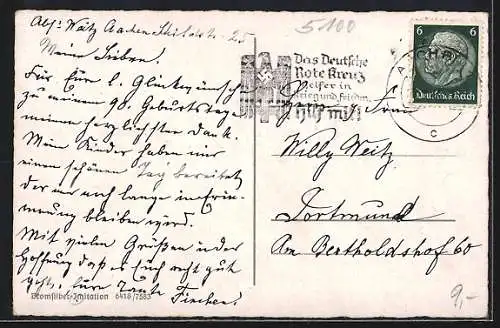 Abs: Wätz Aachen Schildstr. 25
Meine Lieben!
Für Eure l. Glückwünsche
zu meinem 90. Geburtstage
meinen herzlichsten Dank.
Mein Kinder haben mir
einen schönen Tag bereitet
der mir noch lange in Erin-
nerung bleiben wird.
Mit vielen Grüßen u. der
Hoffnung daß es Euch recht gut
geht, Eure Tante
Finchen!
Bromsilber-Imitation 6418/7583
5100
Das Deutsche
Rote Kreuz
Helfer in
Krieg und Frieden
Hilf mit!
6 6
Deutsches Reich
AACHEN
c
Willy Weitz
Dortmund
Am Bertholdshof 60
9,-